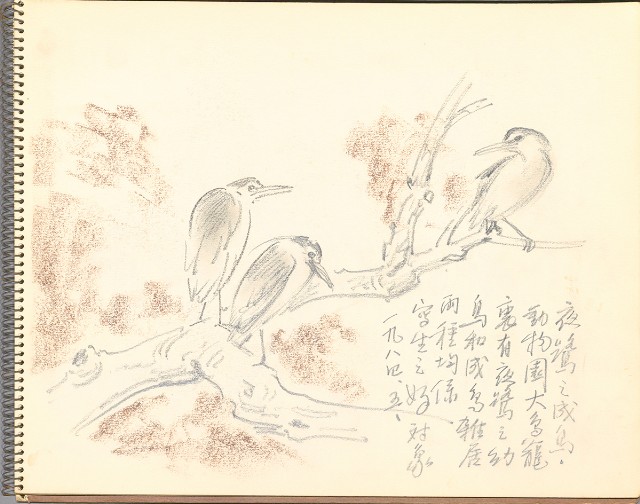 夜鷺之成鳥。
動物園大鳥籠
裏有夜鷺之幼
鳥和成鳥雜居
兩種均係
寫生之好對象
一九八四、五、